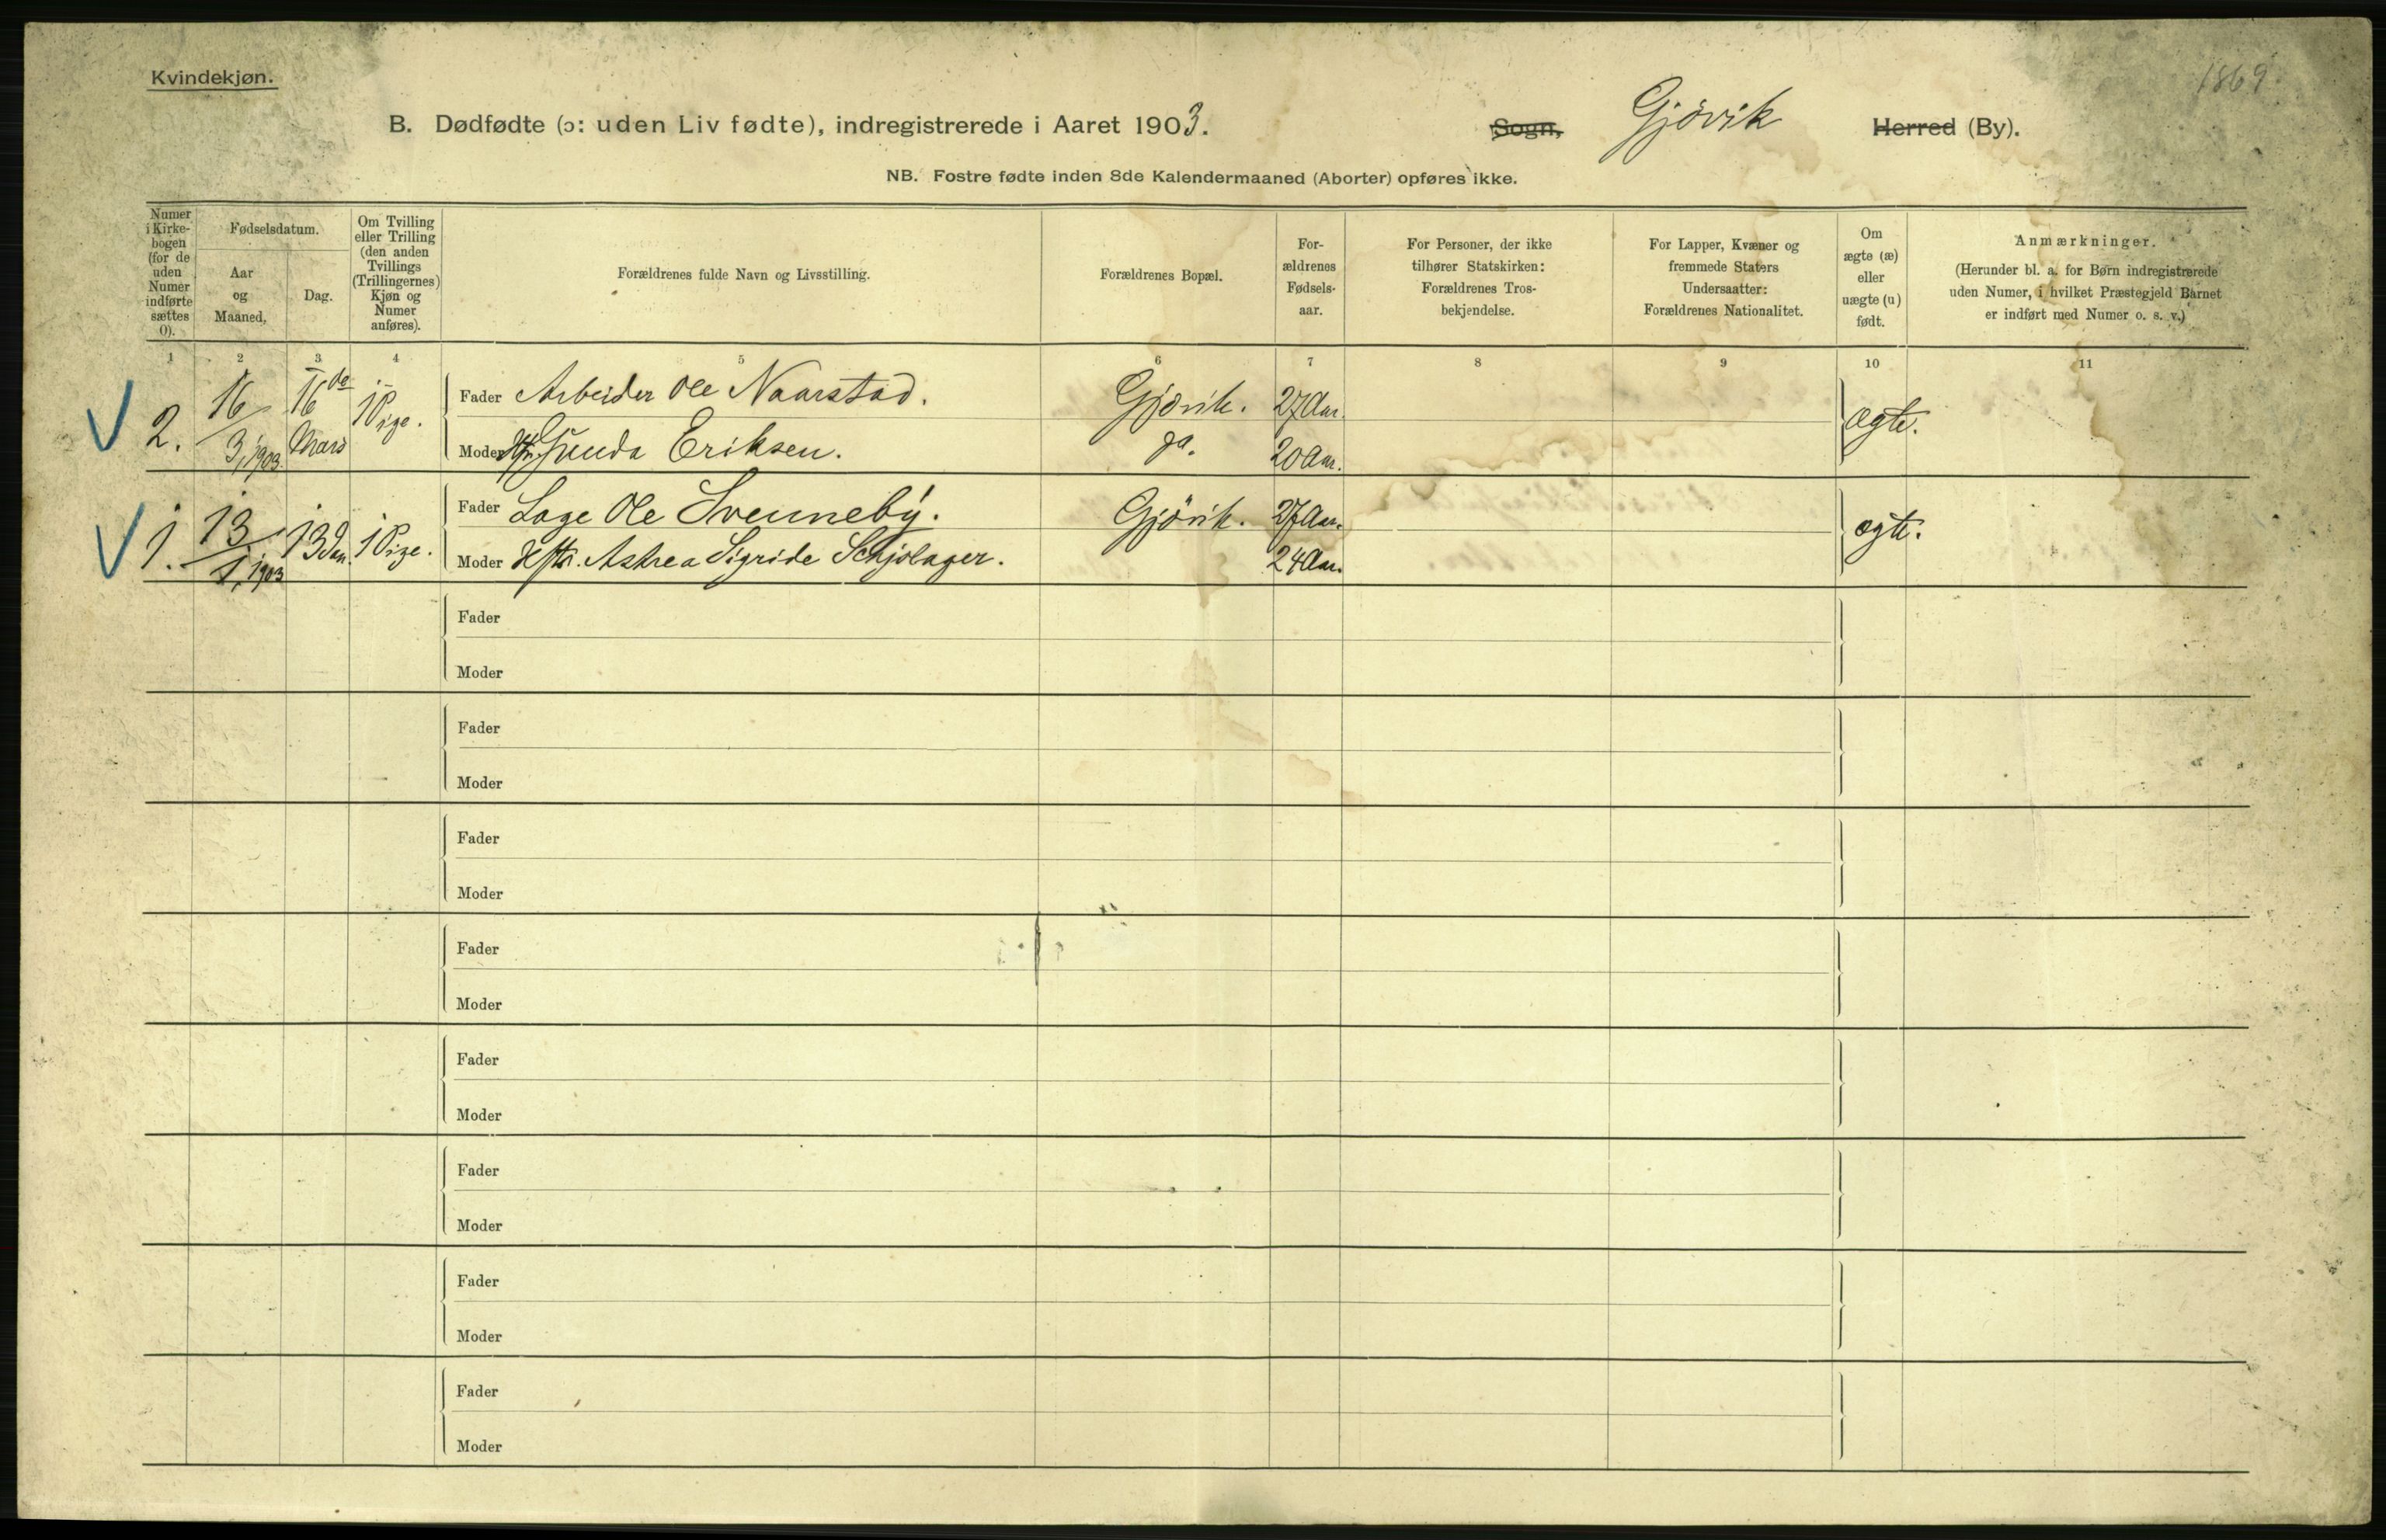 Kvindekjøn.
1869
B. Dødfødte (ɔ: uden Liv fødte), indregistrerede i Aaret 1903.
Sogn, Gjövik Herred (By).
NB. Fostre fødte inden 8de Kalendermaaned (Aborter) opføres ikke.
Numer i Kirke-bogen (for de uden Numer indførte sættes 0).
Fødselsdatum.
Aar og Maaned.
Dag.
Om Tvilling eller Trilling (den anden Tvillings (Trillingernes) Kjøn og Numer anføres).
Forældrenes fulde Navn og Livsstilling.
Forældrenes Bopæl.
For-ældrenes Fødsels-aar.
For Personer, der ikke tilhører Statskirken: Forældrenes Tros-bekjendelse.
For Lapper, Kvæner og fremmede Staters Undersaatter: Forældrenes Nationalitet.
Om ægte (æ) eller uægte (u) født.
Anmærkninger.
(Herunder bl. a. for Børn indregistrerede uden Numer, i hvilket Præstegjeld Barnet er indført med Numer o. s. v.)
1 2 3 4 5 6 7 8 9 10 11
2. 16/3, 1903. 16de Mars 1 Pige. Fader Arbeider Ole Naarstad. Gjövik. 27 Aar. ægte.
Moder Gunda Eriksen. do. 20 Aar.
1. 13/1, 1903 13 Jan. 1 Pige. Fader Ole Svenneby. Gjövik. 27 Aar. ægte.
Moder Astrea Sigride Schjolager. 24 Aar.
Fader
Moder
Fader
Moder
Fader
Moder
Fader
Moder
Fader
Moder
Fader
Moder
Fader
Moder
Fader
Moder